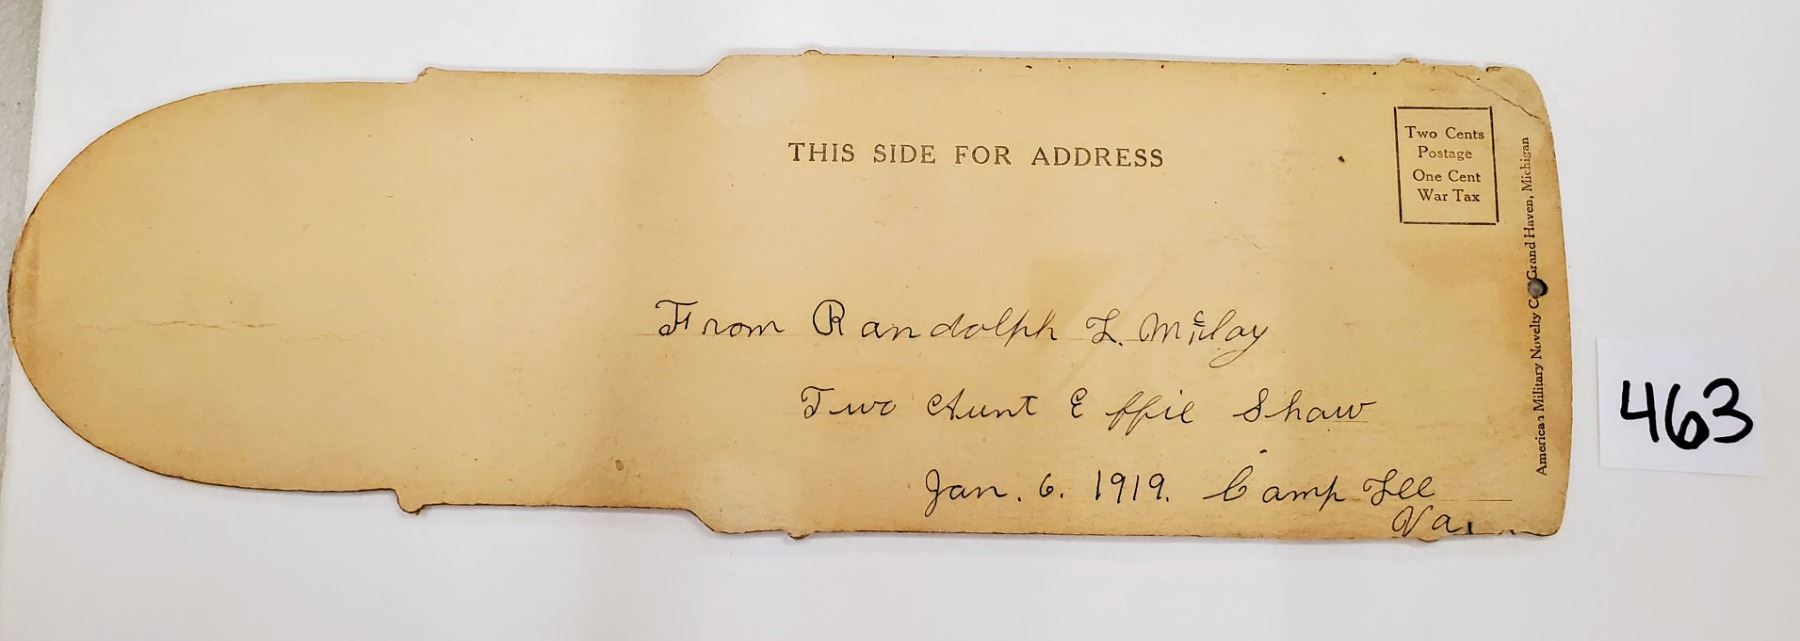 THIS SIDE FOR ADDRESS
Two Cents
Postage
One Cent
War Tax
From Randolph L.
Two Aunt Effie Shaw
Jan. 6. 1919. Camp Lee
Va.
American Military Novelty Co Grand Haven, Michigan
463